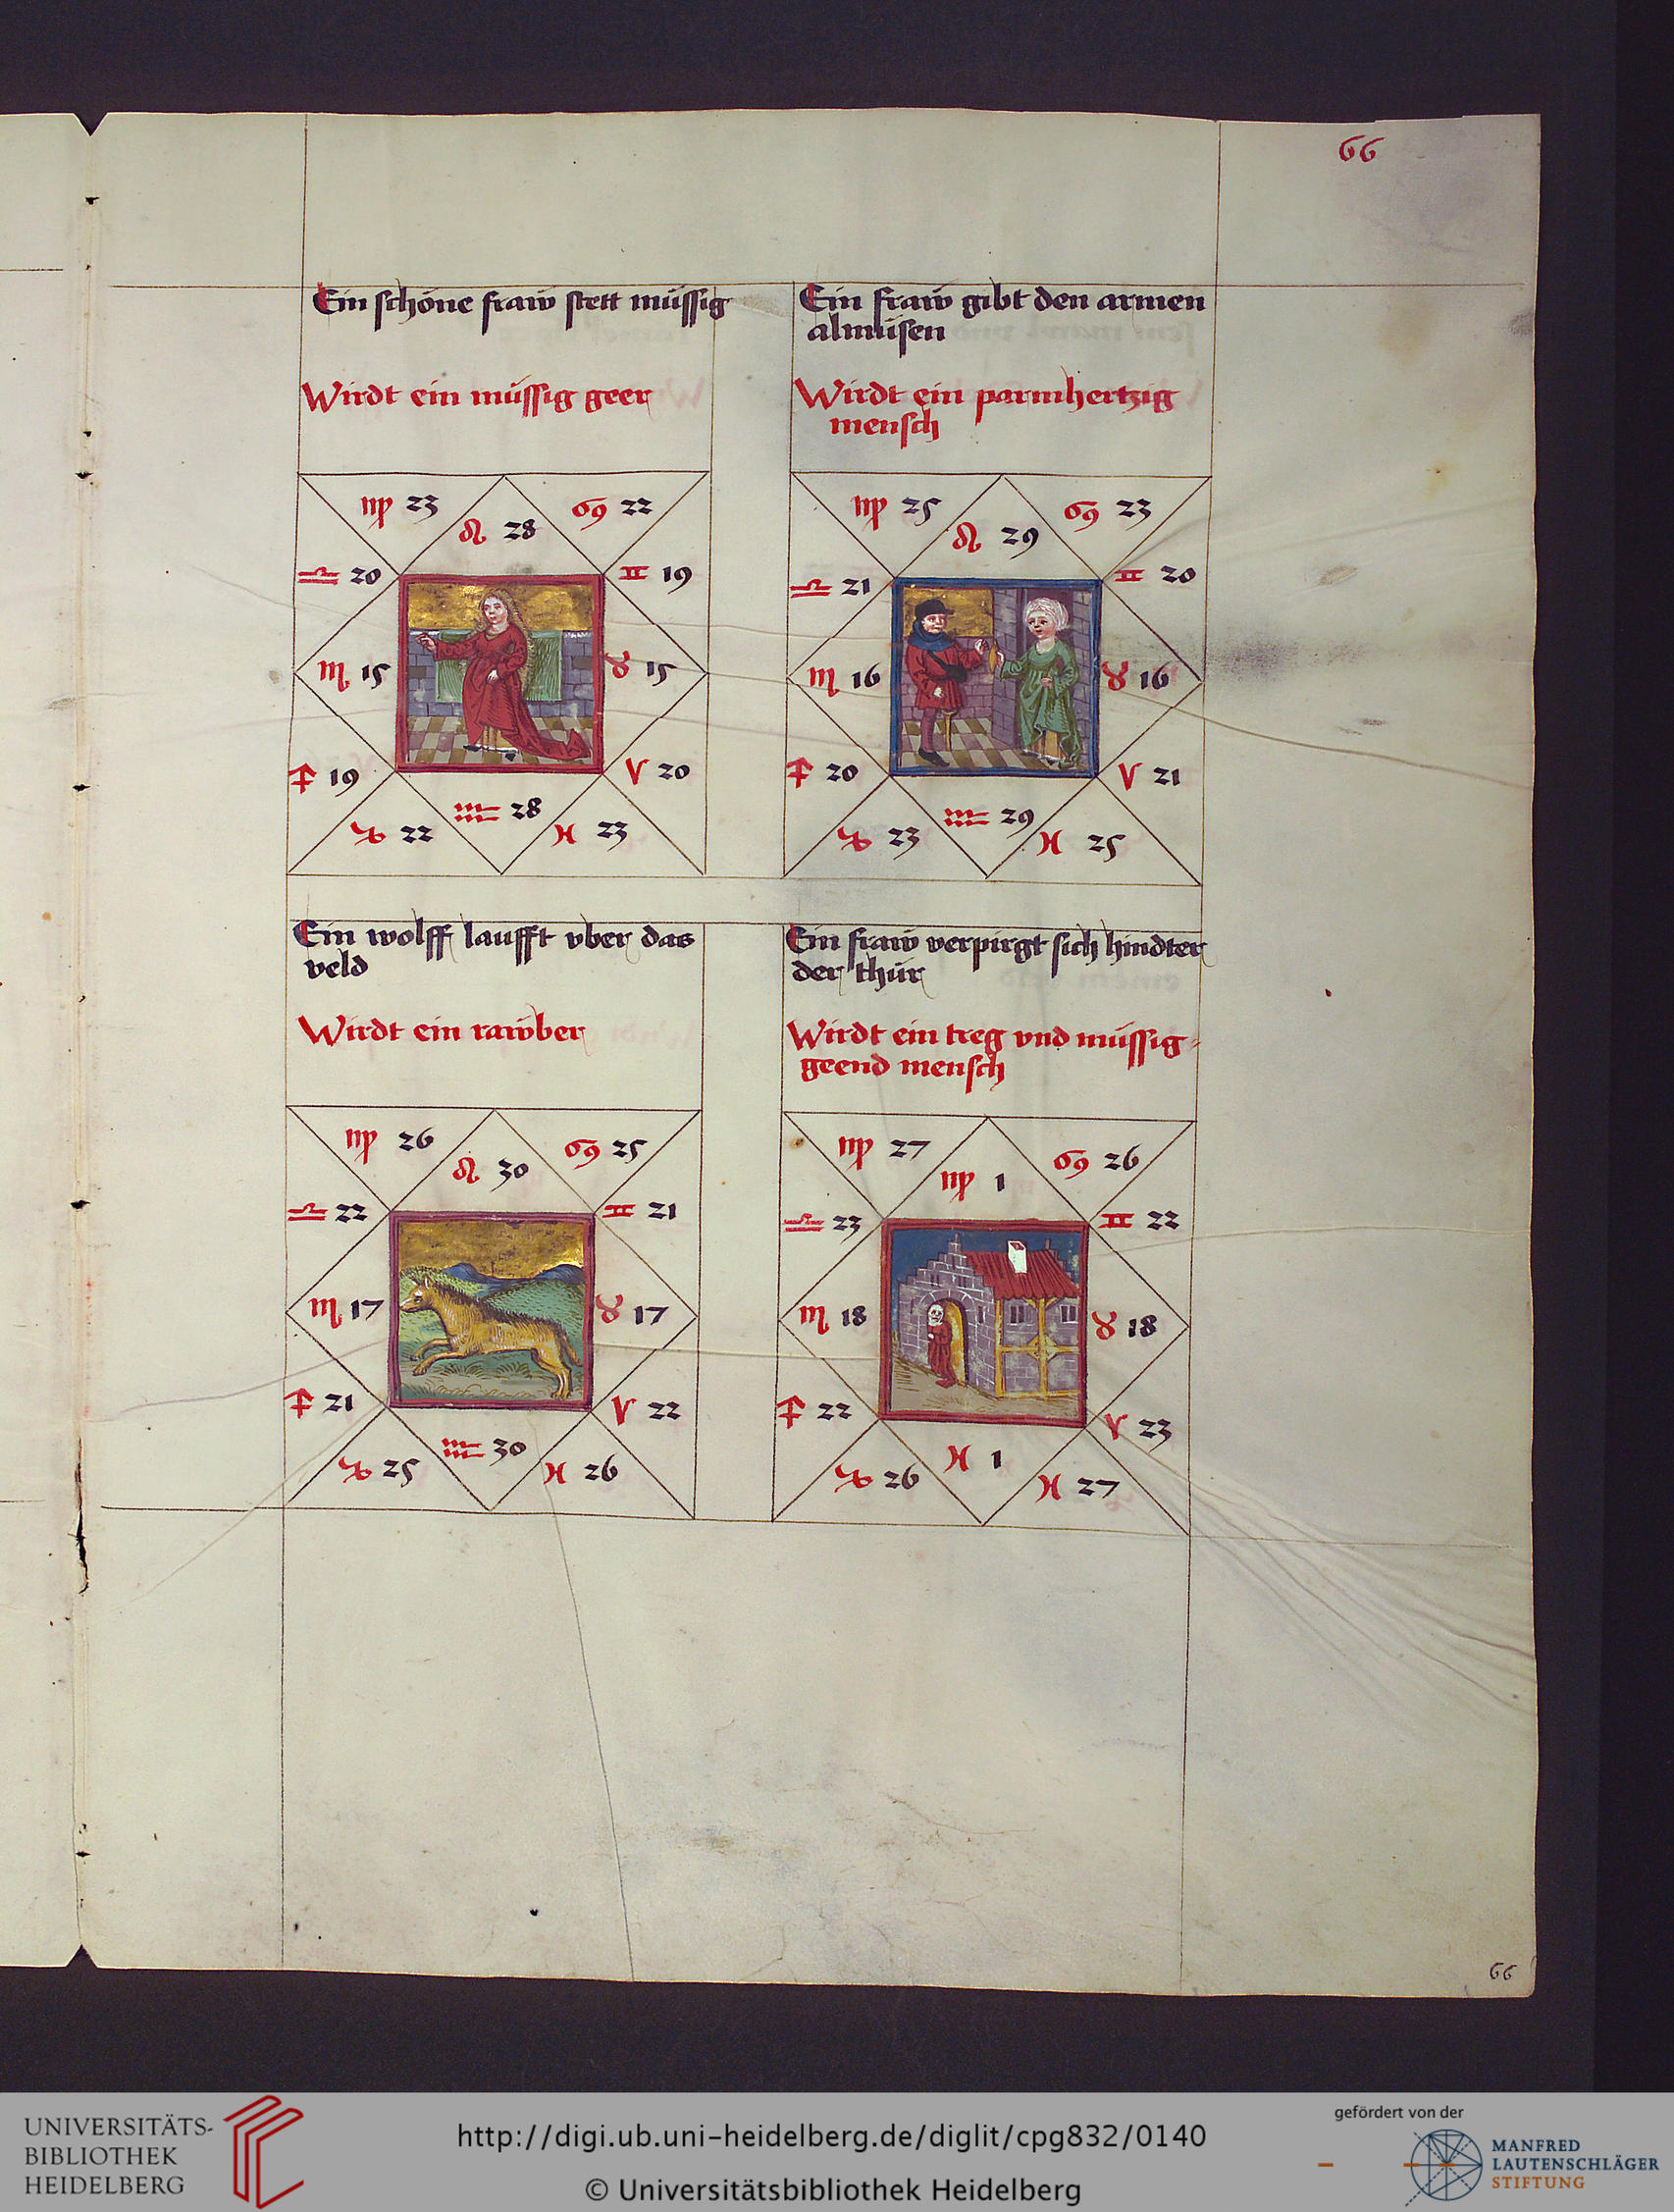 66
Ein schöne fraw stett müssig
Wirdt ein müssig geer
♍ 23
♌ 28
♋ 22
♎ 20
♊ 19
♏ 15
♉ 15
♐ 19
♈ 20
♑ 22
♒ 28
♓ 23
Ein fraw gibt den armen
almüsen
Wirdt ein parmhertzig
mensch
♍ 25
♌ 29
♋ 23
♎ 21
♊ 20
♏ 16
♉ 16
♐ 20
♈ 21
♑ 23
♒ 29
♓ 25
Ein wolff laufft vber das
veld
Wirdt ein rawber
♍ 26
♌ 30
♋ 25
♎ 22
♊ 21
♏ 17
♉ 17
♐ 21
♈ 22
♑ 25
♒ 30
♓ 26
Ein fraw verpirgt sich hindter
der thür
Wirdt ein treg vnd müssig-
geend mensch
♍ 27
♍ 1
♋ 26
♎ 23
♊ 22
♏ 18
♉ 18
♐ 22
♈ 23
♑ 26
♓ 1
♓ 27
66
UNIVERSITÄTS-
BIBLIOTHEK
HEIDELBERG
http://digi.ub.uni-heidelberg.de/diglit/cpg832/0140
© Universitätsbibliothek Heidelberg
gefördert von der
MANFRED
LAUTENSCHLÄGER
STIFTUNG